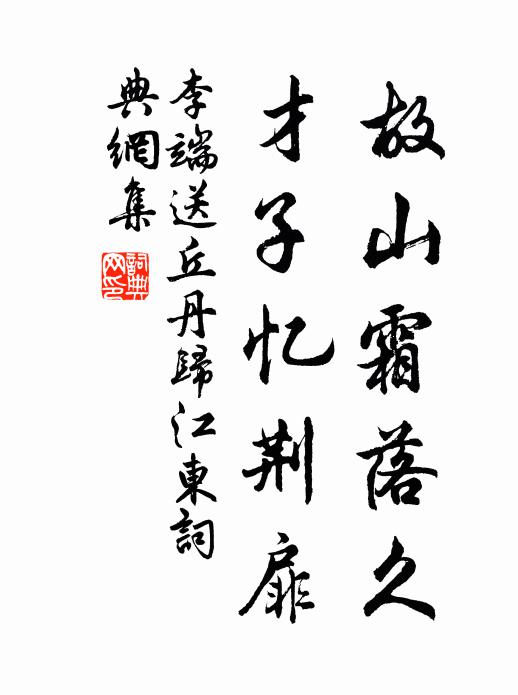 故山霜落久
才子忆荆扉
李端送丘丹歸江東詞
典網集
詞典网印